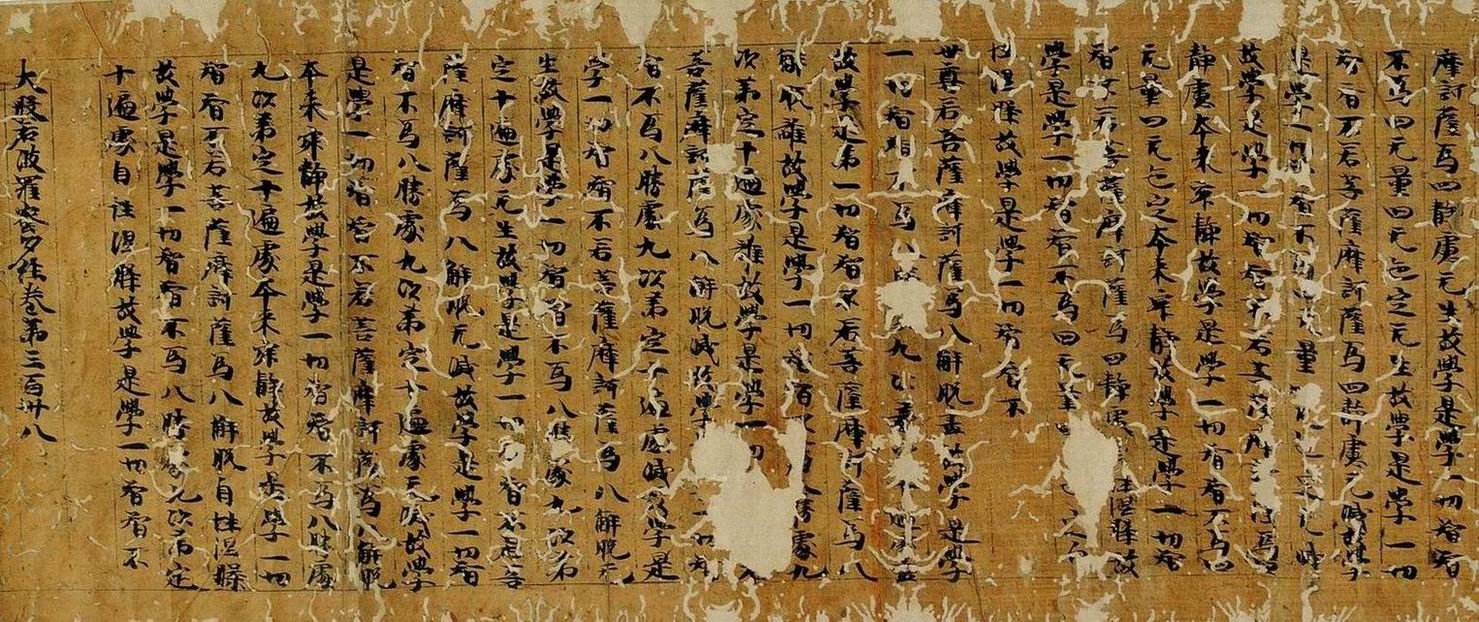 摩訶薩為四靜慮无生故學是學一切智智
不為四无量四无色定无生故學是學一切
智智不若菩薩摩訶薩為四靜慮无滅故學
是學一切智智不為四无量四无色定无滅
故學是學一切智智不若菩薩摩訶薩為四
靜慮本来寂靜故學是學一切智智不為四
无量四无色定本来寂靜故學是學一切智
智不若菩薩摩訶薩為四靜慮性涅槃故
學是學一切智智不為四无量四无色
性涅槃故學是學一切智智不
世尊若菩薩摩訶薩為八解脫盡故學是學
一切智智不為八勝九次第處盡
故學是學一切智智不若菩薩摩訶薩為八
解脫離故學是學一切智智不勝處九
次第定十遍處離故學是學一切
菩薩摩訶薩為八解脫滅故學一切智
智不為八勝處九次第定十遍處滅故學是
學一切智智不若菩薩摩訶薩為八解脫无
生故學是學一切智智不為八勝處九次第
定十遍處无生故學是學一切智智不若菩
薩摩訶薩為八解脫无滅故學是學一切智
智不為八勝處九次第定十遍處无滅故學
是學一切智智不若菩薩摩訶薩為八解脫
本来寂靜故學是學一切智智不為八勝處
九次第定十遍處本来寂靜故學是學一切
智智不若菩薩摩訶薩為八解脫自性涅槃
故學是學一切智智不為八勝處九次第定
十遍處自性涅槃故學是學一切智智不
大般若波羅蜜多經卷第三百卅八